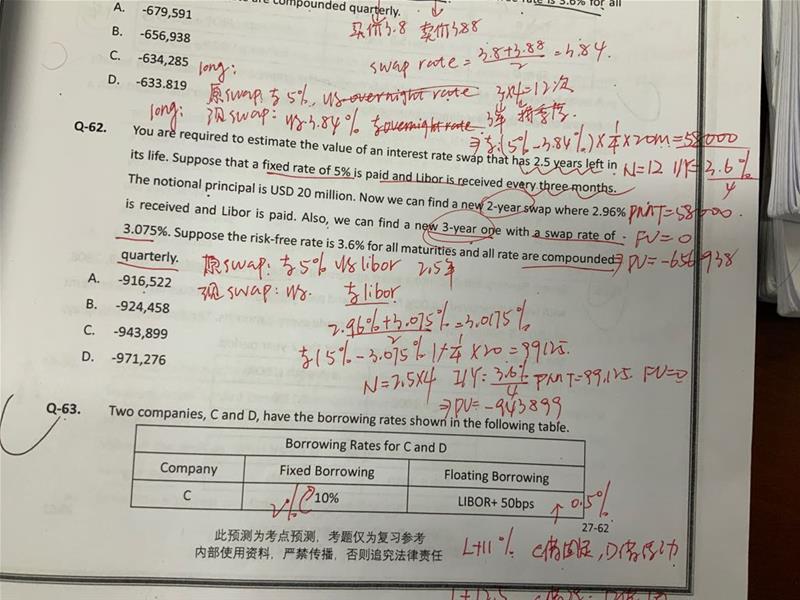 are compounded quarterly.
rate is 3.6% for all
A. -679,591
B. -656,938
C. -634,285
D. -633.819
买价3.8 卖价3.88
swap rate = 3.8+3.88/2 = 3.84.
long:
原swap: 付5%, 收overnight rate 3×4=12次
long: 现swap: 收3.84% 付overnight rate 3年
⇒付(5%-3.84%)×1/4×20m=58000
Q-62. You are required to estimate the value of an interest rate swap that has 2.5 years left in
its life. Suppose that a fixed rate of 5% is paid and Libor is received every three months.
The notional principal is USD 20 million. Now we can find a new 2-year swap where 2.96%
is received and Libor is paid. Also, we can find a new 3-year one with a swap rate of
3.075%. Suppose the risk-free rate is 3.6% for all maturities and all rate are compounded
quarterly.
N=12 I/Y=3.6%/4
PMT=58000.
FV=0
⇒PV=-656938
原swap: 付5% 收libor 2.5年
现swap: 收. 付libor
A. -916,522
B. -924,458
C. -943,899
D. -971,276
2.96%+3.075%/2=3.0175%
付(5%-3.075%)×1/4×20=99125.
N=2.5×4 I/Y=3.6%/4 PMT=99.125. FV=0
⇒PV=-943899
Q-63. Two companies, C and D, have the borrowing rates shown in the following table.
Borrowing Rates for C and D
Company Fixed Borrowing Floating Borrowing
C 10% LIBOR+ 50bps
2% 0.5%
27-62
此预测为考点预测，考题仅为复习参考
内部使用资料，严禁传播，否则追究法律责任
L+11% C借固定, D借浮动